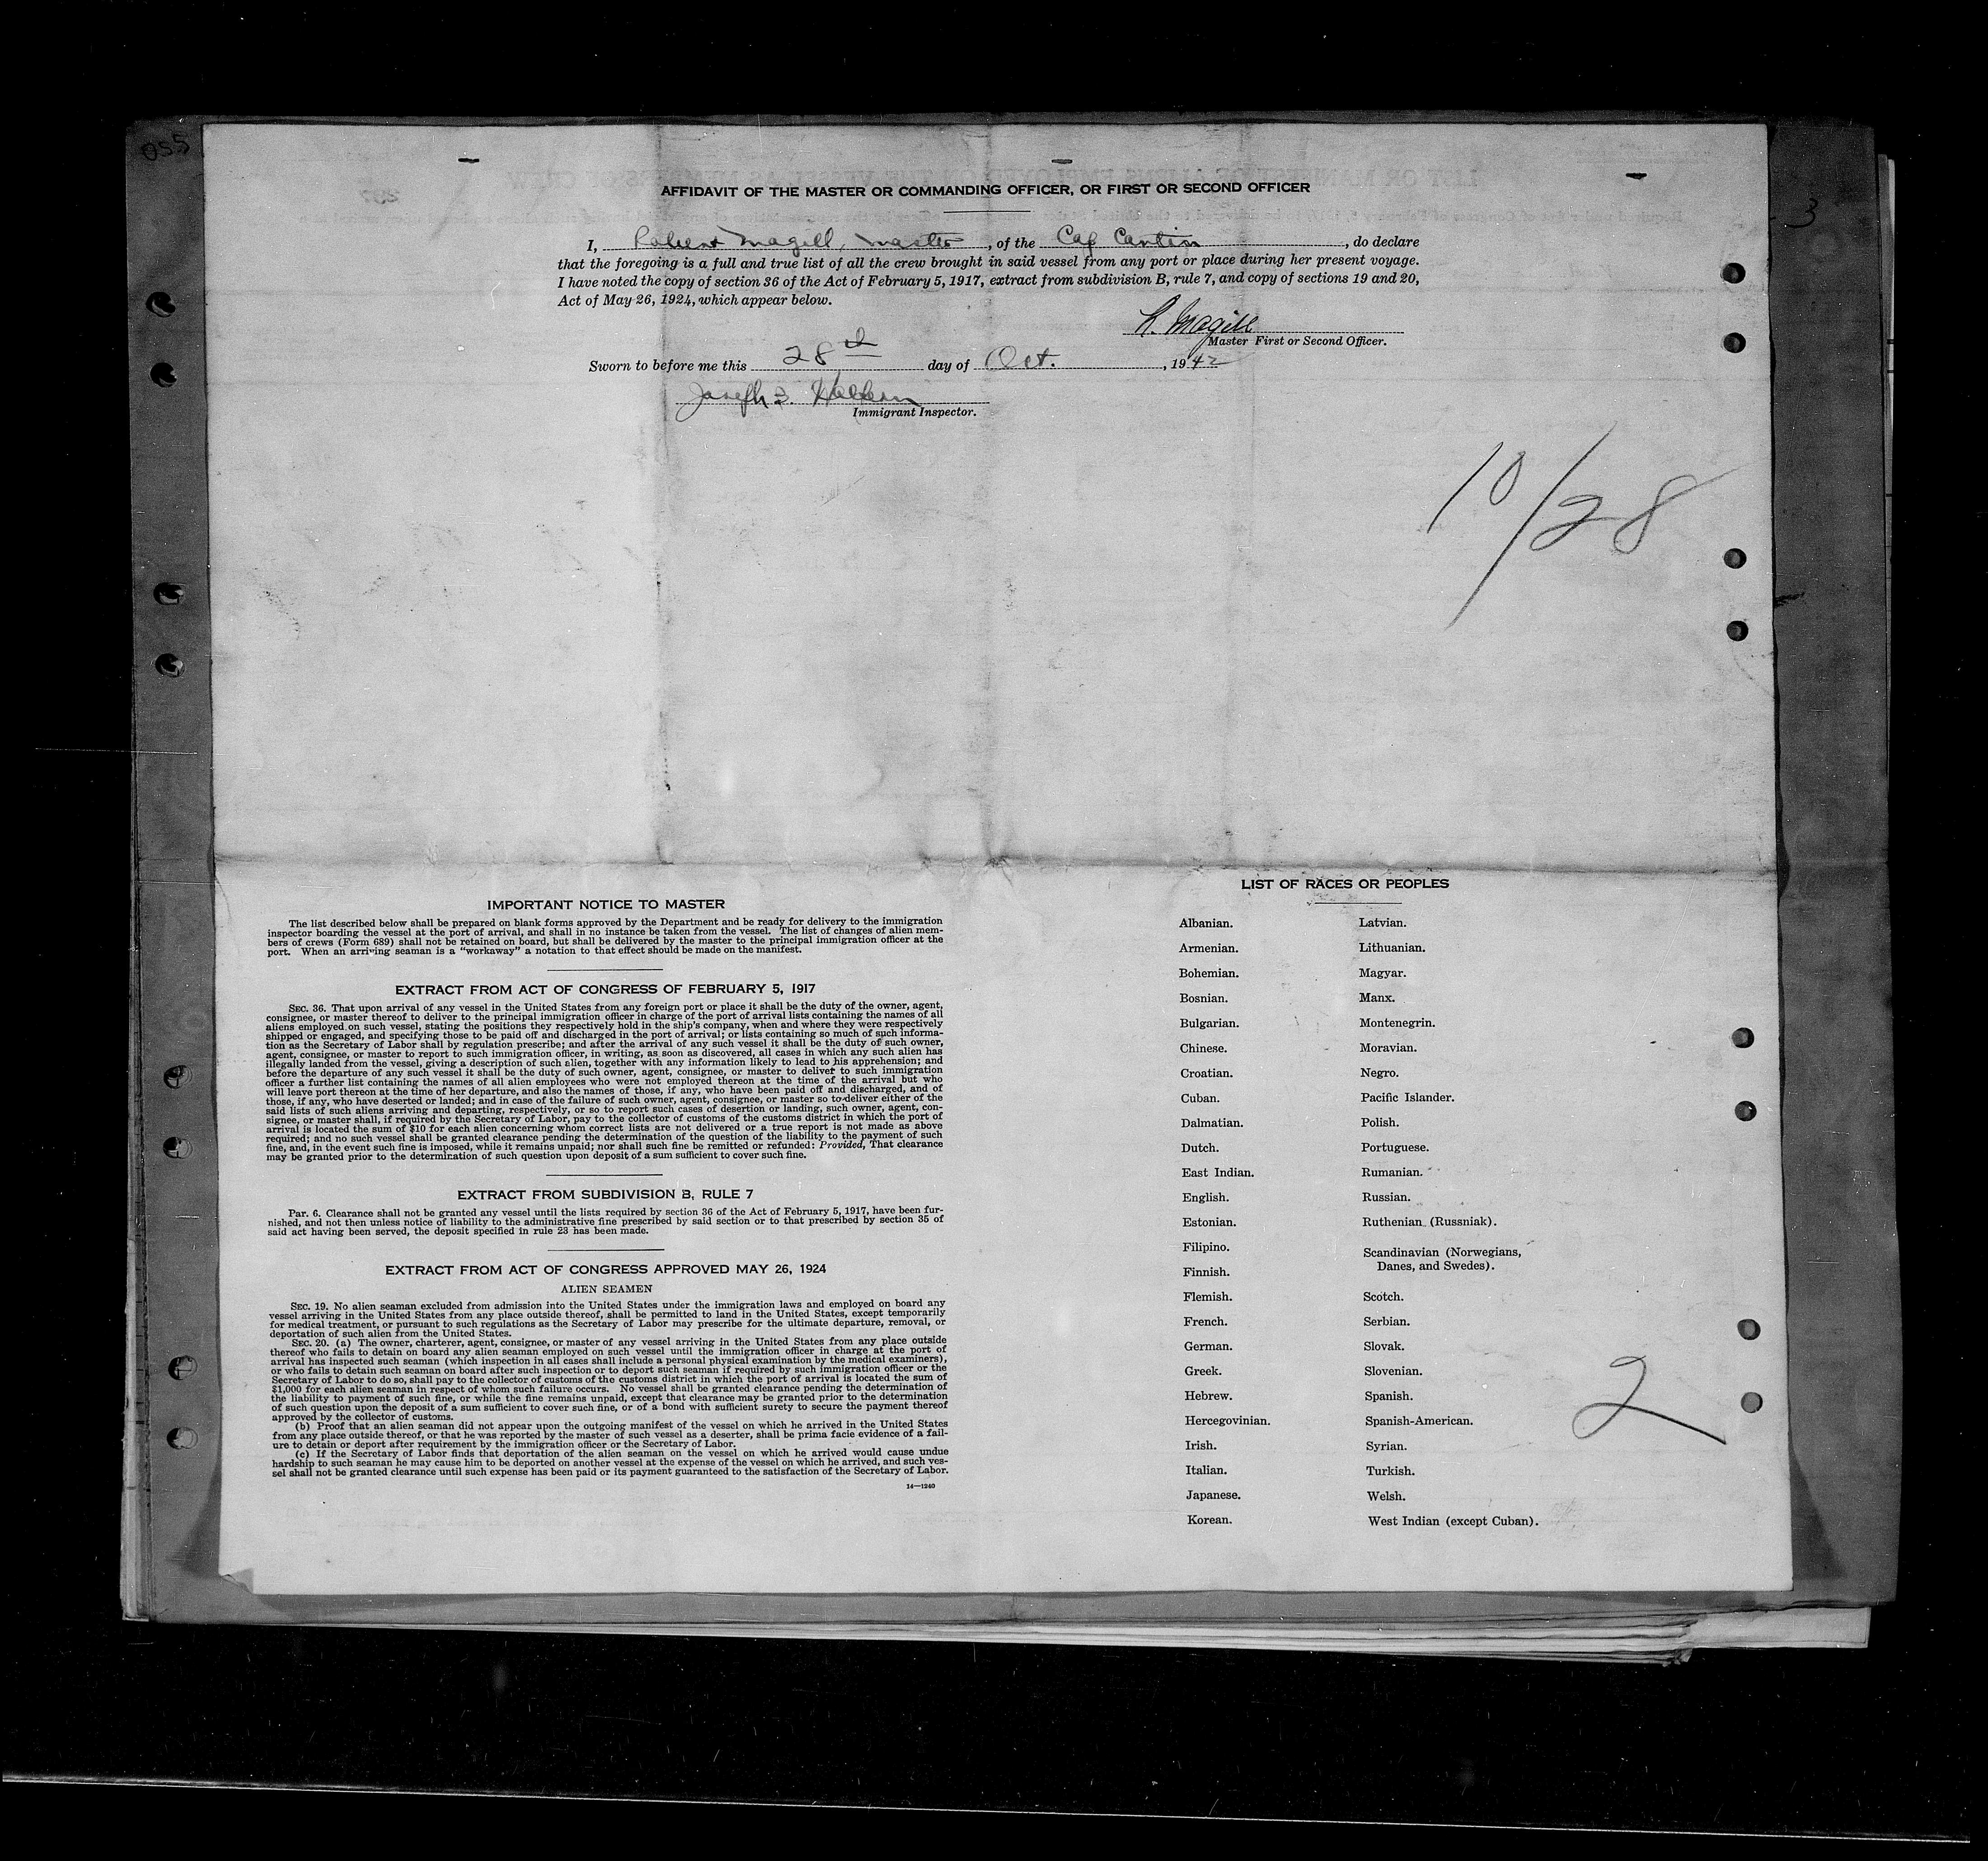 055
3
AFFIDAVIT OF THE MASTER OR COMMANDING OFFICER, OR FIRST OR SECOND OFFICER
I, Robert Magill, master, of the Cap Cantin, do declare
that the foregoing is a full and true list of all the crew brought in said vessel from any port or place during her present voyage.
I have noted the copy of section 36 of the Act of February 5, 1917, extract from subdivision B, rule 7, and copy of sections 19 and 20,
Act of May 26, 1924, which appear below.
R. Magill
Master First or Second Officer.
Sworn to before me this 28th day of Oct., 1942
Joseph
Immigrant Inspector.
10/28
IMPORTANT NOTICE TO MASTER
The list described below shall be prepared on blank forms approved by the Department and be ready for delivery to the immigration
inspector boarding the vessel at the port of arrival, and shall in no instance be taken from the vessel. The list of changes of alien mem-
bers of crews (Form 689) shall not be retained on board, but shall be delivered by the master to the principal immigration officer at the
port. When an arriving seaman is a "workaway" a notation to that effect should be made on the manifest.
EXTRACT FROM ACT OF CONGRESS OF FEBRUARY 5, 1917
SEC. 36. That upon arrival of any vessel in the United States from any foreign port or place it shall be the duty of the owner, agent,
consignee, or master thereof to deliver to the principal immigration officer in charge of the port of arrival lists containing the names of all
aliens employed on such vessel, stating the positions they respectively hold in the ship's company, when and where they were respectively
shipped or engaged, and specifying those to be paid off and discharged in the port of arrival; or lists containing so much of such informa-
tion as the Secretary of Labor shall by regulation prescribe; and after the arrival of any such vessel it shall be the duty of such owner,
agent, consignee, or master to report to such immigration officer, in writing, as soon as discovered, all cases in which any such alien has
illegally landed from the vessel, giving a description of such alien, together with any information likely to lead to his apprehension; and
before the departure of any such vessel it shall be the duty of such owner, agent, consignee, or master to deliver to such immigration
officer a further list containing the names of all alien employees who were not employed thereon at the time of the arrival but who
will leave port thereon at the time of her departure, and also the names of those, if any, who have been paid off and discharged, and of
those, if any, who have deserted or landed; and in case of the failure of such owner, agent, consignee, or master so to deliver either of the
said lists of such aliens arriving and departing, respectively, or so to report such cases of desertion or landing, such owner, agent, con-
signee, or master shall, if required by the Secretary of Labor, pay to the collector of customs of the customs district in which the port of
arrival is located the sum of $10 for each alien concerning whom correct lists are not delivered or a true report is not made as above
required; and no such vessel shall be granted clearance pending the determination of the question of the liability to the payment of such
fine, and, in the event such fine is imposed, while it remains unpaid; nor shall such fine be remitted or refunded: Provided, That clearance
may be granted prior to the determination of such question upon deposit of a sum sufficient to cover such fine.
EXTRACT FROM SUBDIVISION B, RULE 7
Par. 6. Clearance shall not be granted any vessel until the lists required by section 36 of the Act of February 5, 1917, have been fur-
nished, and not then unless notice of liability to the administrative fine prescribed by said section or to that prescribed by section 35 of
said act having been served, the deposit specified in rule 23 has been made.
EXTRACT FROM ACT OF CONGRESS APPROVED MAY 26, 1924
ALIEN SEAMEN
SEC. 19. No alien seaman excluded from admission into the United States under the immigration laws and employed on board any
vessel arriving in the United States from any place outside thereof, shall be permitted to land in the United States, except temporarily
for medical treatment, or pursuant to such regulations as the Secretary of Labor may prescribe for the ultimate departure, removal, or
deportation of such alien from the United States.
SEC. 20. (a) The owner, charterer, agent, consignee, or master of any vessel arriving in the United States from any place outside
thereof who fails to detain on board any alien seaman employed on such vessel until the immigration officer in charge at the port of
arrival has inspected such seaman (which inspection in all cases shall include a personal physical examination by the medical examiners),
or who fails to detain such seaman on board after such inspection or to deport such seaman if required by such immigration officer or the
Secretary of Labor to do so, shall pay to the collector of customs of the customs district in which the port of arrival is located the sum of
$1,000 for each alien seaman in respect of whom such failure occurs. No vessel shall be granted clearance pending the determination of
the liability to payment of such fine, or while the fine remains unpaid, except that clearance may be granted prior to the determination
of such question upon the deposit of a sum sufficient to cover such fine, or of a bond with sufficient surety to secure the payment thereof
approved by the collector of customs.
(b) Proof that an alien seaman did not appear upon the outgoing manifest of the vessel on which he arrived in the United States
from any place outside thereof, or that he was reported by the master of such vessel as a deserter, shall be prima facie evidence of a fail-
ure to detain or deport after requirement by the immigration officer or the Secretary of Labor.
(c) If the Secretary of Labor finds that deportation of the alien seaman on the vessel on which he arrived would cause undue
hardship to such seaman he may cause him to be deported on another vessel at the expense of the vessel on which he arrived, and such ves-
sel shall not be granted clearance until such expense has been paid or its payment guaranteed to the satisfaction of the Secretary of Labor.
14—1240
LIST OF RACES OR PEOPLES
Albanian.
Armenian.
Bohemian.
Bosnian.
Bulgarian.
Chinese.
Croatian.
Cuban.
Dalmatian.
Dutch.
East Indian.
English.
Estonian.
Filipino.
Finnish.
Flemish.
French.
German.
Greek.
Hebrew.
Hercegovinian.
Irish.
Italian.
Japanese.
Korean.
Latvian.
Lithuanian.
Magyar.
Manx.
Montenegrin.
Moravian.
Negro.
Pacific Islander.
Polish.
Portuguese.
Rumanian.
Russian.
Ruthenian (Russniak).
Scandinavian (Norwegians,
Danes, and Swedes).
Scotch.
Serbian.
Slovak.
Slovenian.
Spanish.
Spanish-American.
Syrian.
Turkish.
Welsh.
West Indian (except Cuban).
2